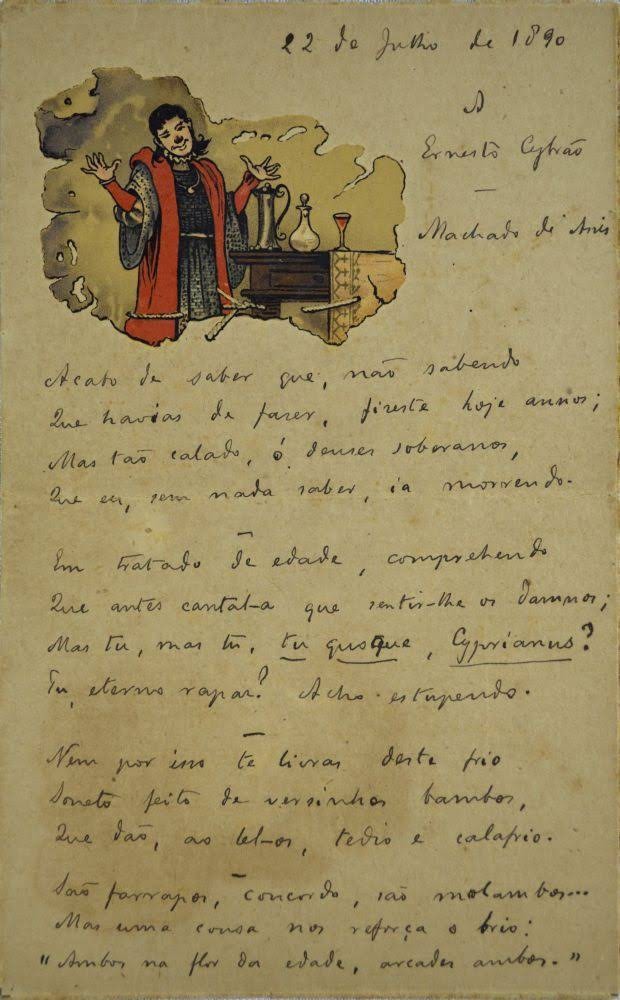 22 de Julho de 1890
A
Ernesto Cybrão
—
Machado de Assis
Acabo de saber que, não sabendo
Que havias de fazer, fizeste hoje annos;
Mas tão calado, ó deuses soberanos,
Que eu, sem nada saber, ia morrendo.
Em tratado de edade, comprehendo
Que antes cantal-a que sentir-lhe os damnos;
Mas tu, mas tu, tu quoque, Cyprianus?
Tu, eterno rapaz? Acho estupendo.
Nem por isso te livras deste frio
Soneto feito de versinhos bambos,
Que dão, ao lel-os, tedio e calafrio.
São farrapos, concordo, são molambos...
Mas uma cousa nos reforça o brio:
"Ambos na flor da edade, arcades ambos."